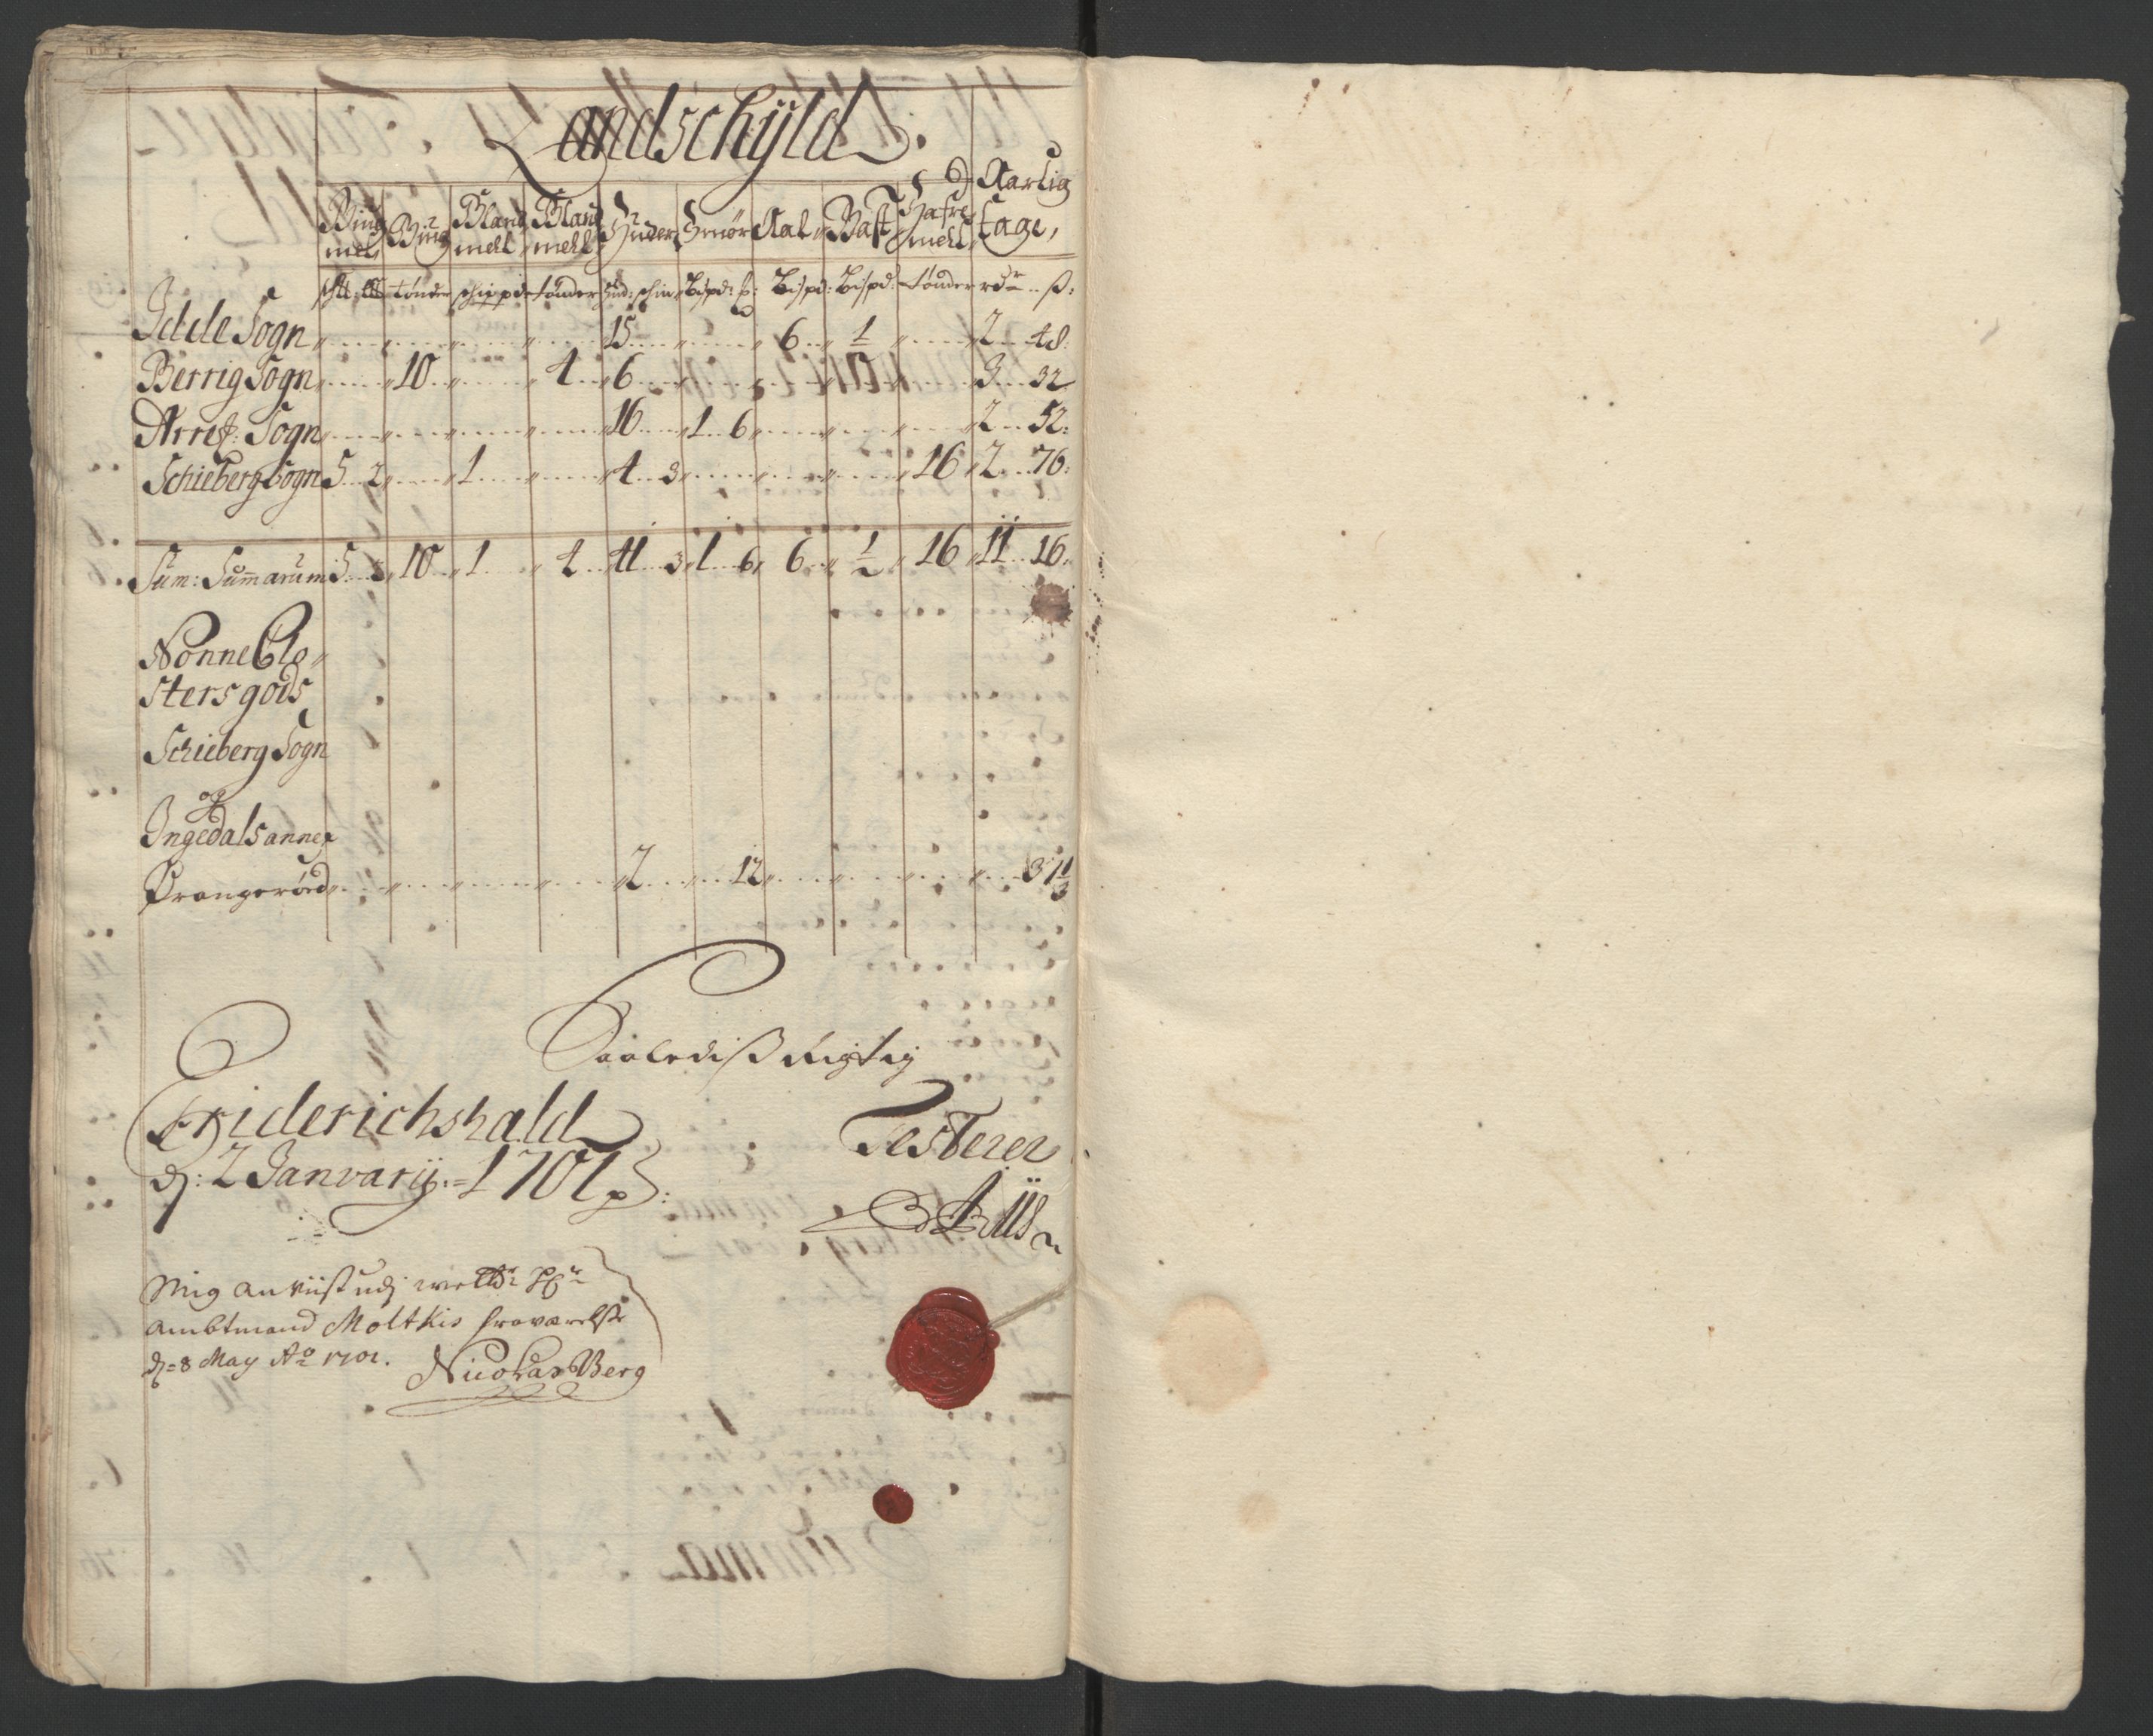 Landschÿld
Biug mel Biug Bland mell Bland mehl Huder Smør Aal Bast Hafre mehl Aarlig tage,
tønder schippd tønder Hud: schin Bispd: Bispd: Bispd: tønder rdr ß:
Idde Sogn 15 6 1/2 2 48:
Berrig Sogn 10 4 6 3 32
Arref: Sogn 16 1 6 2 52:
Schieberg Sogn 5 2 1 4 3 16 2 76:
Sum: Summarum 5 2 10 1 4 41 3 1 6 6 1/2 16 11 16
Nonne Clo-
sters gods
Schieberg Sogn
og
Ingedals annex
Prangerød 2 12 31 1/3
Saaledis Rigtig
Friderichshald
d: 2 Janvarij = 1701
Testerer
Mig anviist udj Hr
Ambtmand Moltkis fraværelse
d= 8 May Ao 1701.
Nicolas Berg